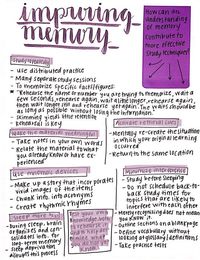 improving
memory
How can an
understanding
of memory
contribute to
more effective
study techniques?
Study repeatedly
• Use distributed practice
• Many separate study sessions
• To memorize specific facts/figures:
"rehearse the name or number you are trying to memorize, wait a
few seconds, rehearse again, wait a little longer, rehearse again,
then wait longer still and rehearse yet again. The waits should be
as long as possible without losing the information."
• Skimming yields little retention
• Rehearsal is key
Make the material meaningful
• Take notes in your own words
• Relate the material to what
you already know or have ex-
perienced
Activate retrieval cues
• Mentally re-create the situation
in which your original learning
occurred
• Return to the same location
Use mnemonic devices
• Make up a story that incorporates
vivid images of the items
• Chunk info into acronyms
• Create rhythmic rhymes
Minimize interference
• Study before sleep
• Do not schedule back-to-
back study times for
topics that are likely to
interfere with each other
Sleep more
• During sleep, the
brain reorganizes and con-
solidates info for
long-term memory
• Sleep deprivation
disrupts this process
Test your own
knowledge
• Merely recognizing does not mean
you know it
• Outline sections on a blank page
• Define vocabulary without
looking at possible definitions
• Take practice tests